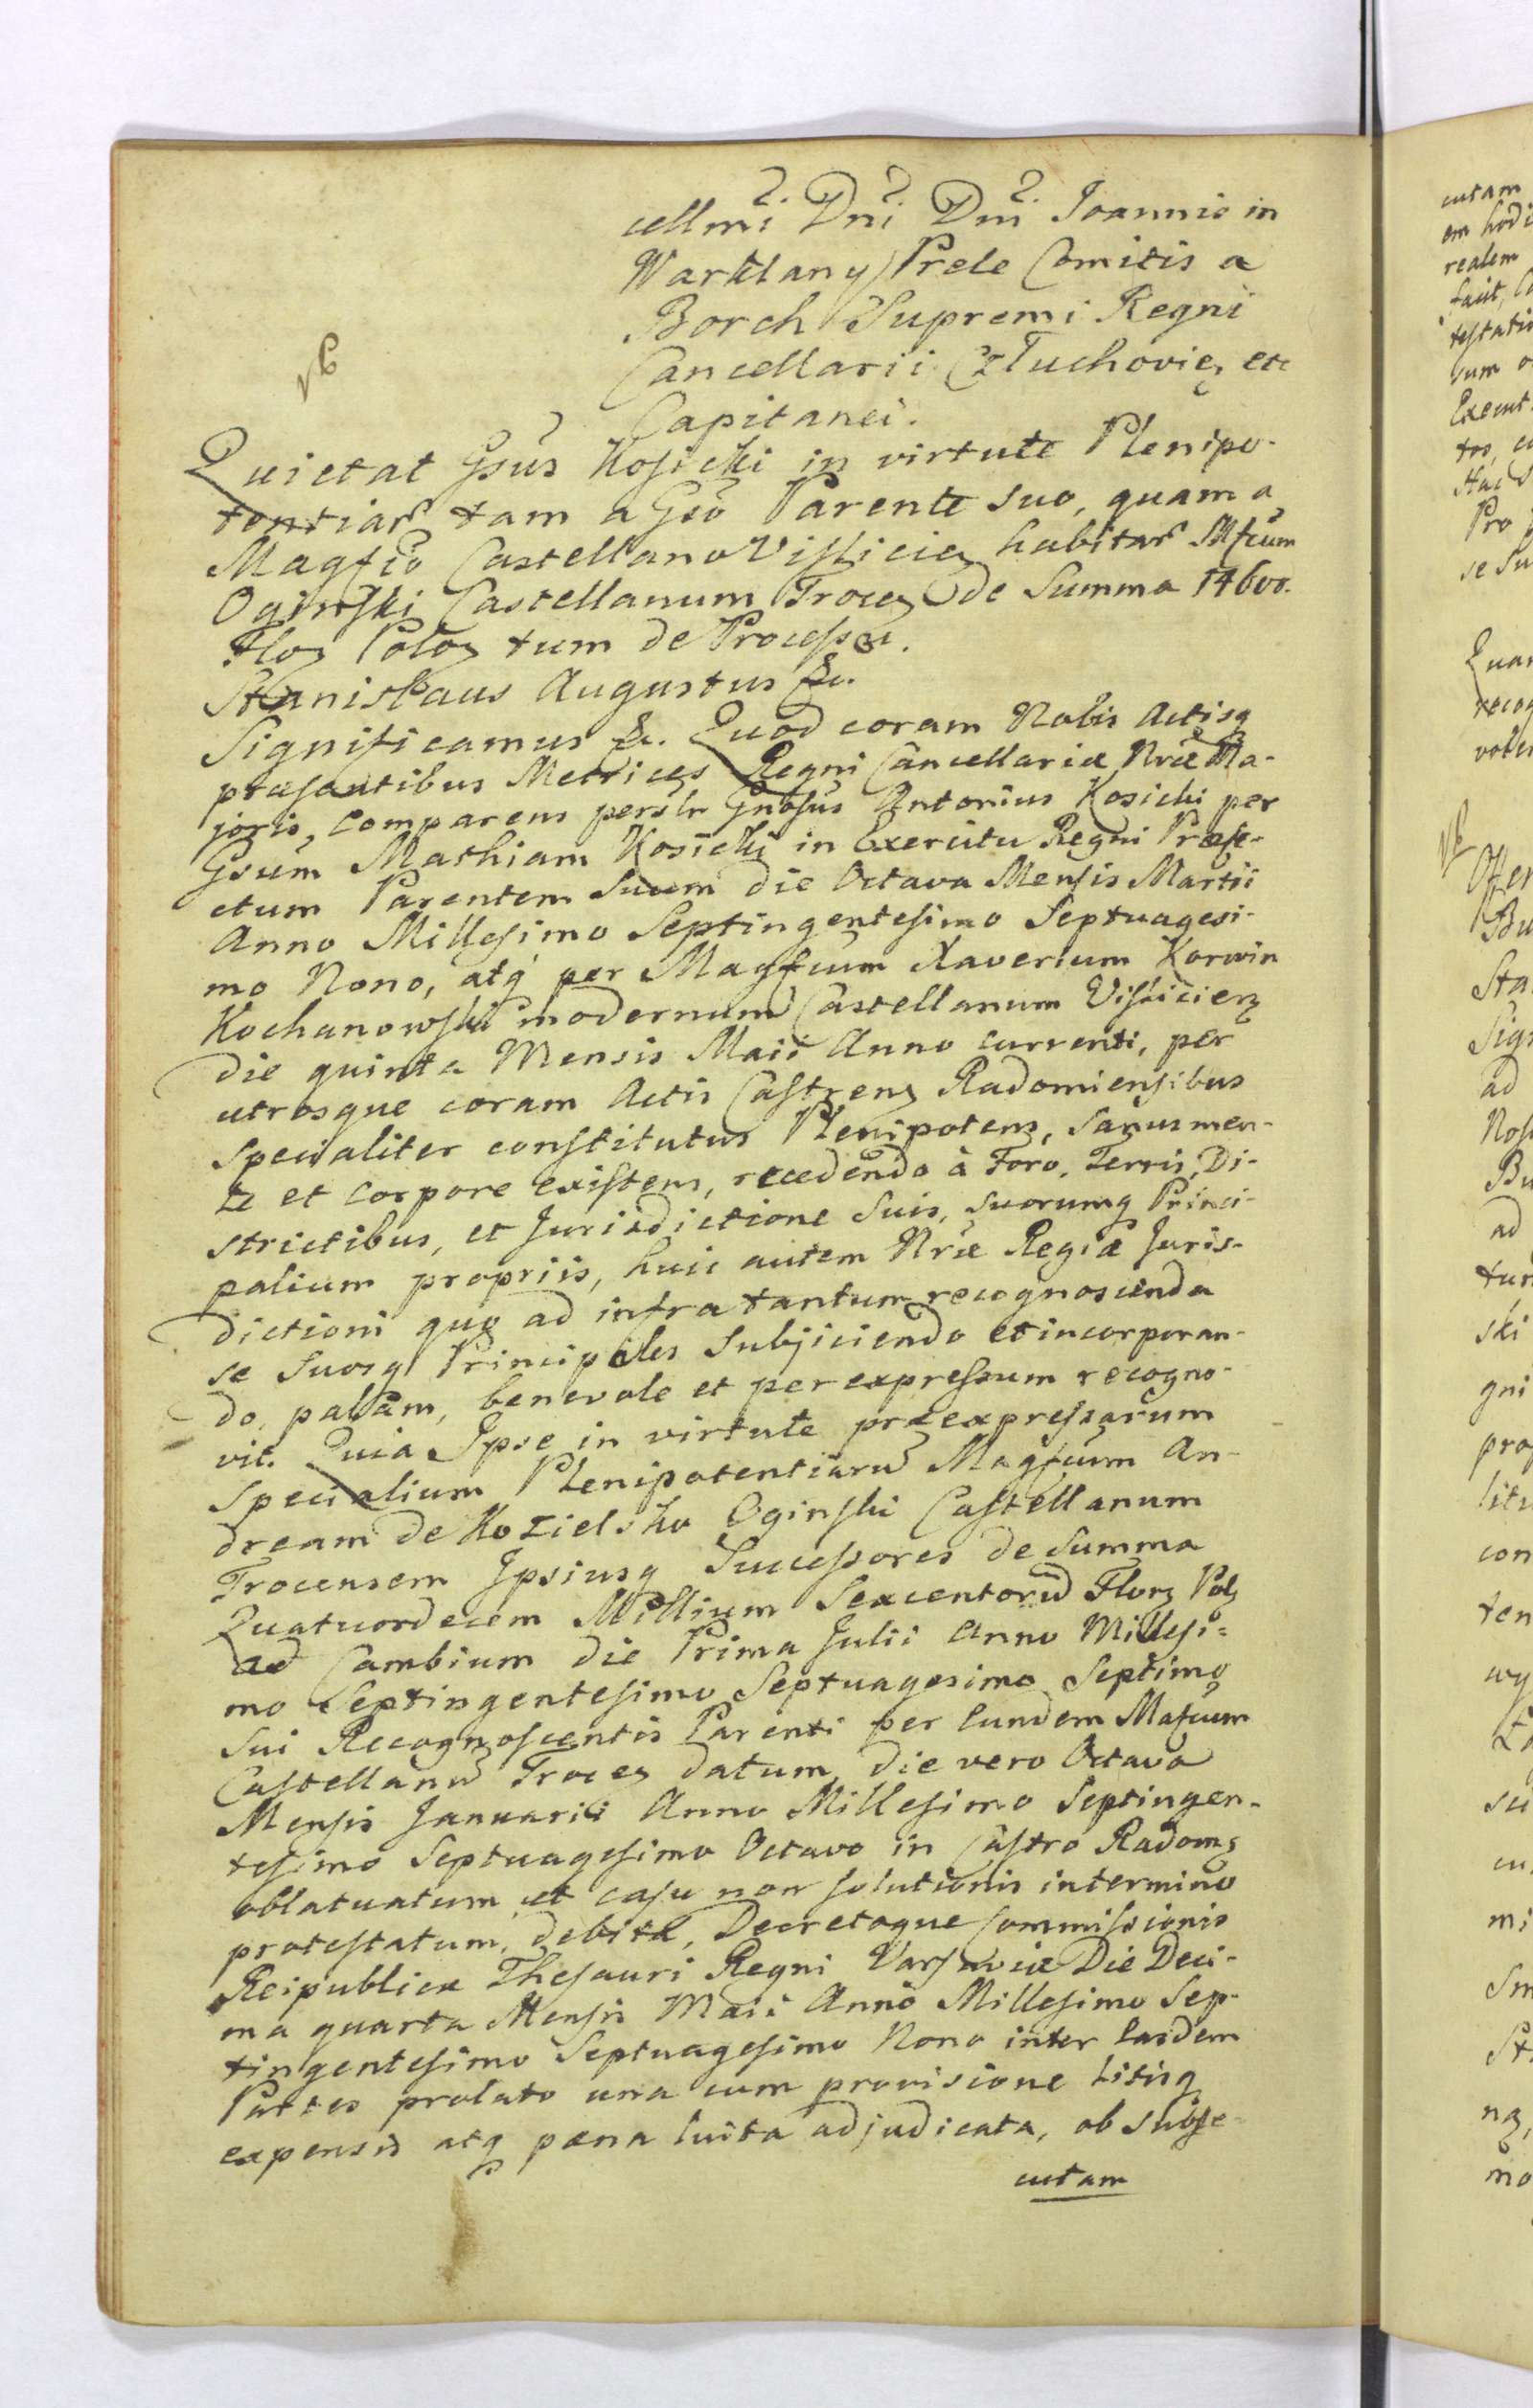 cellmi Dni Dni Joannis in
Warklany Prele Comitis a
Borch Supremi Regni
Cancellarii Tuchovien etc
Capitanei.
Quietat Gsus Kosicki in virtute Plenipo-
tentiar tam a Gso Parente suo, quam a
Magfio Castellano Vislicien habitar Mfcum
Oginski Castellanum Trocen de Summa 14600.
Flor Polon tum de Processu.
Stanislaus Augustus &c.
Significamus &c. Quod coram Nobis Actisq
præsentibus Metrices Regni Cancellariæ Nræ Ma-
joris, Comparens persltr Gnosus Antonius Kosicki per
Gsum Mathiam Kosicki in Exercitu Regni Præfe-
ctum Parentem Suum die Octava Mensis Martii
Anno Millesimo Septingentesimo Septuagesi-
mo Nono, atq per Magfcum Xaverium Korwin
Kochanowski modernum Castellanum Vislicien
die quinta Mensis Maii Anno currenti, per
utrosque coram Actis Castren Radomiensibus
specialiter constitutus Plenipotens, sanus men-
te et corpore existens, recedendo à Foro, Terris, Di-
strictibus, et Jurisdictione Suis, suorumq Princi-
palium propriis, huic autem Nræ Regiæ Juris-
dictioni quo ad infra tantum recognoscenda
se suosq Principales Subjiciendo et incorporan-
do, palam, benevole et per expressum recogno-
vit. Quia Ipse in virtute præexpressarum
Specialium Plenipotentiaru Magfcum An-
dream de Kozielsko Oginski Castellanum
Trocensem Ipsiusq Successores de Summa
Quatuordecem Millium Sexcentoru Flor Pol
ad Cambium die Prima Julii Anno Millesi-
mo Septingentesimo Septuagesimo Septimo
Sui Recognoscentis Parenti per Eundem Mafcum
Castellanu Trocen datum, die vero Octava
Mensis Januarii Anno Millesimo Septingen-
tesimo Septuagesimo Octavo in Castro Radom
oblatuatum et casu non solutionis in termino
protestatum, debita, Decretoque Commissionis
Reipublicæ Thesauri Regni Varsaviæ Die Deci-
ma quarta Mensis Maii Anno Millesimo Sep-
tingentesimo Septuagesimo Nono inter Easdem
Partes prolato una cum provisione Litisq
expensis atq pæna luita adjudicata, ob subse-
cutam